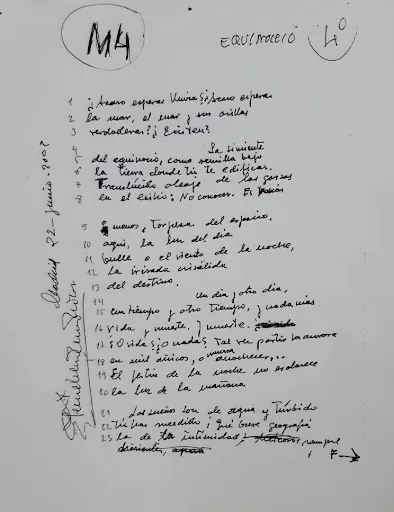 M4
EQUINOCCIO 4º
Madrid 22-Junio-2002
1 ¿Acaso esperas lluvia? ¿Acaso esperas
2 la mar, el mar y sus orillas
3 verdaderas? ¿Existen?
La simiente
del equinoccio, como semilla bajo
la tierra donde tú te edificas.
7 Translúcido oleaje de las garzas
8 en el estío: No conoces. Es
9 menos, Torpeza del espacio,
10 aquí, la luz del día
11 bulle o el viento de la noche,
12 la irisada crisálida
13 del destino.
14 Un día y otro día,
15 un tiempo y otro tiempo, y nada más
16 vida y muerte. Y muerte.
17 ¿O vida? ¿O nada? Tal vez partir la aurora
18 en mil añicos, o nunca amanecer...
19 El festín de la noche no esclarece
20 la luz de la mañana
21 Los sueños son de agua y túrbido
22 tu pas medido: ¡Qué breve geografía
23 la de tu intimidad, siempre
F →